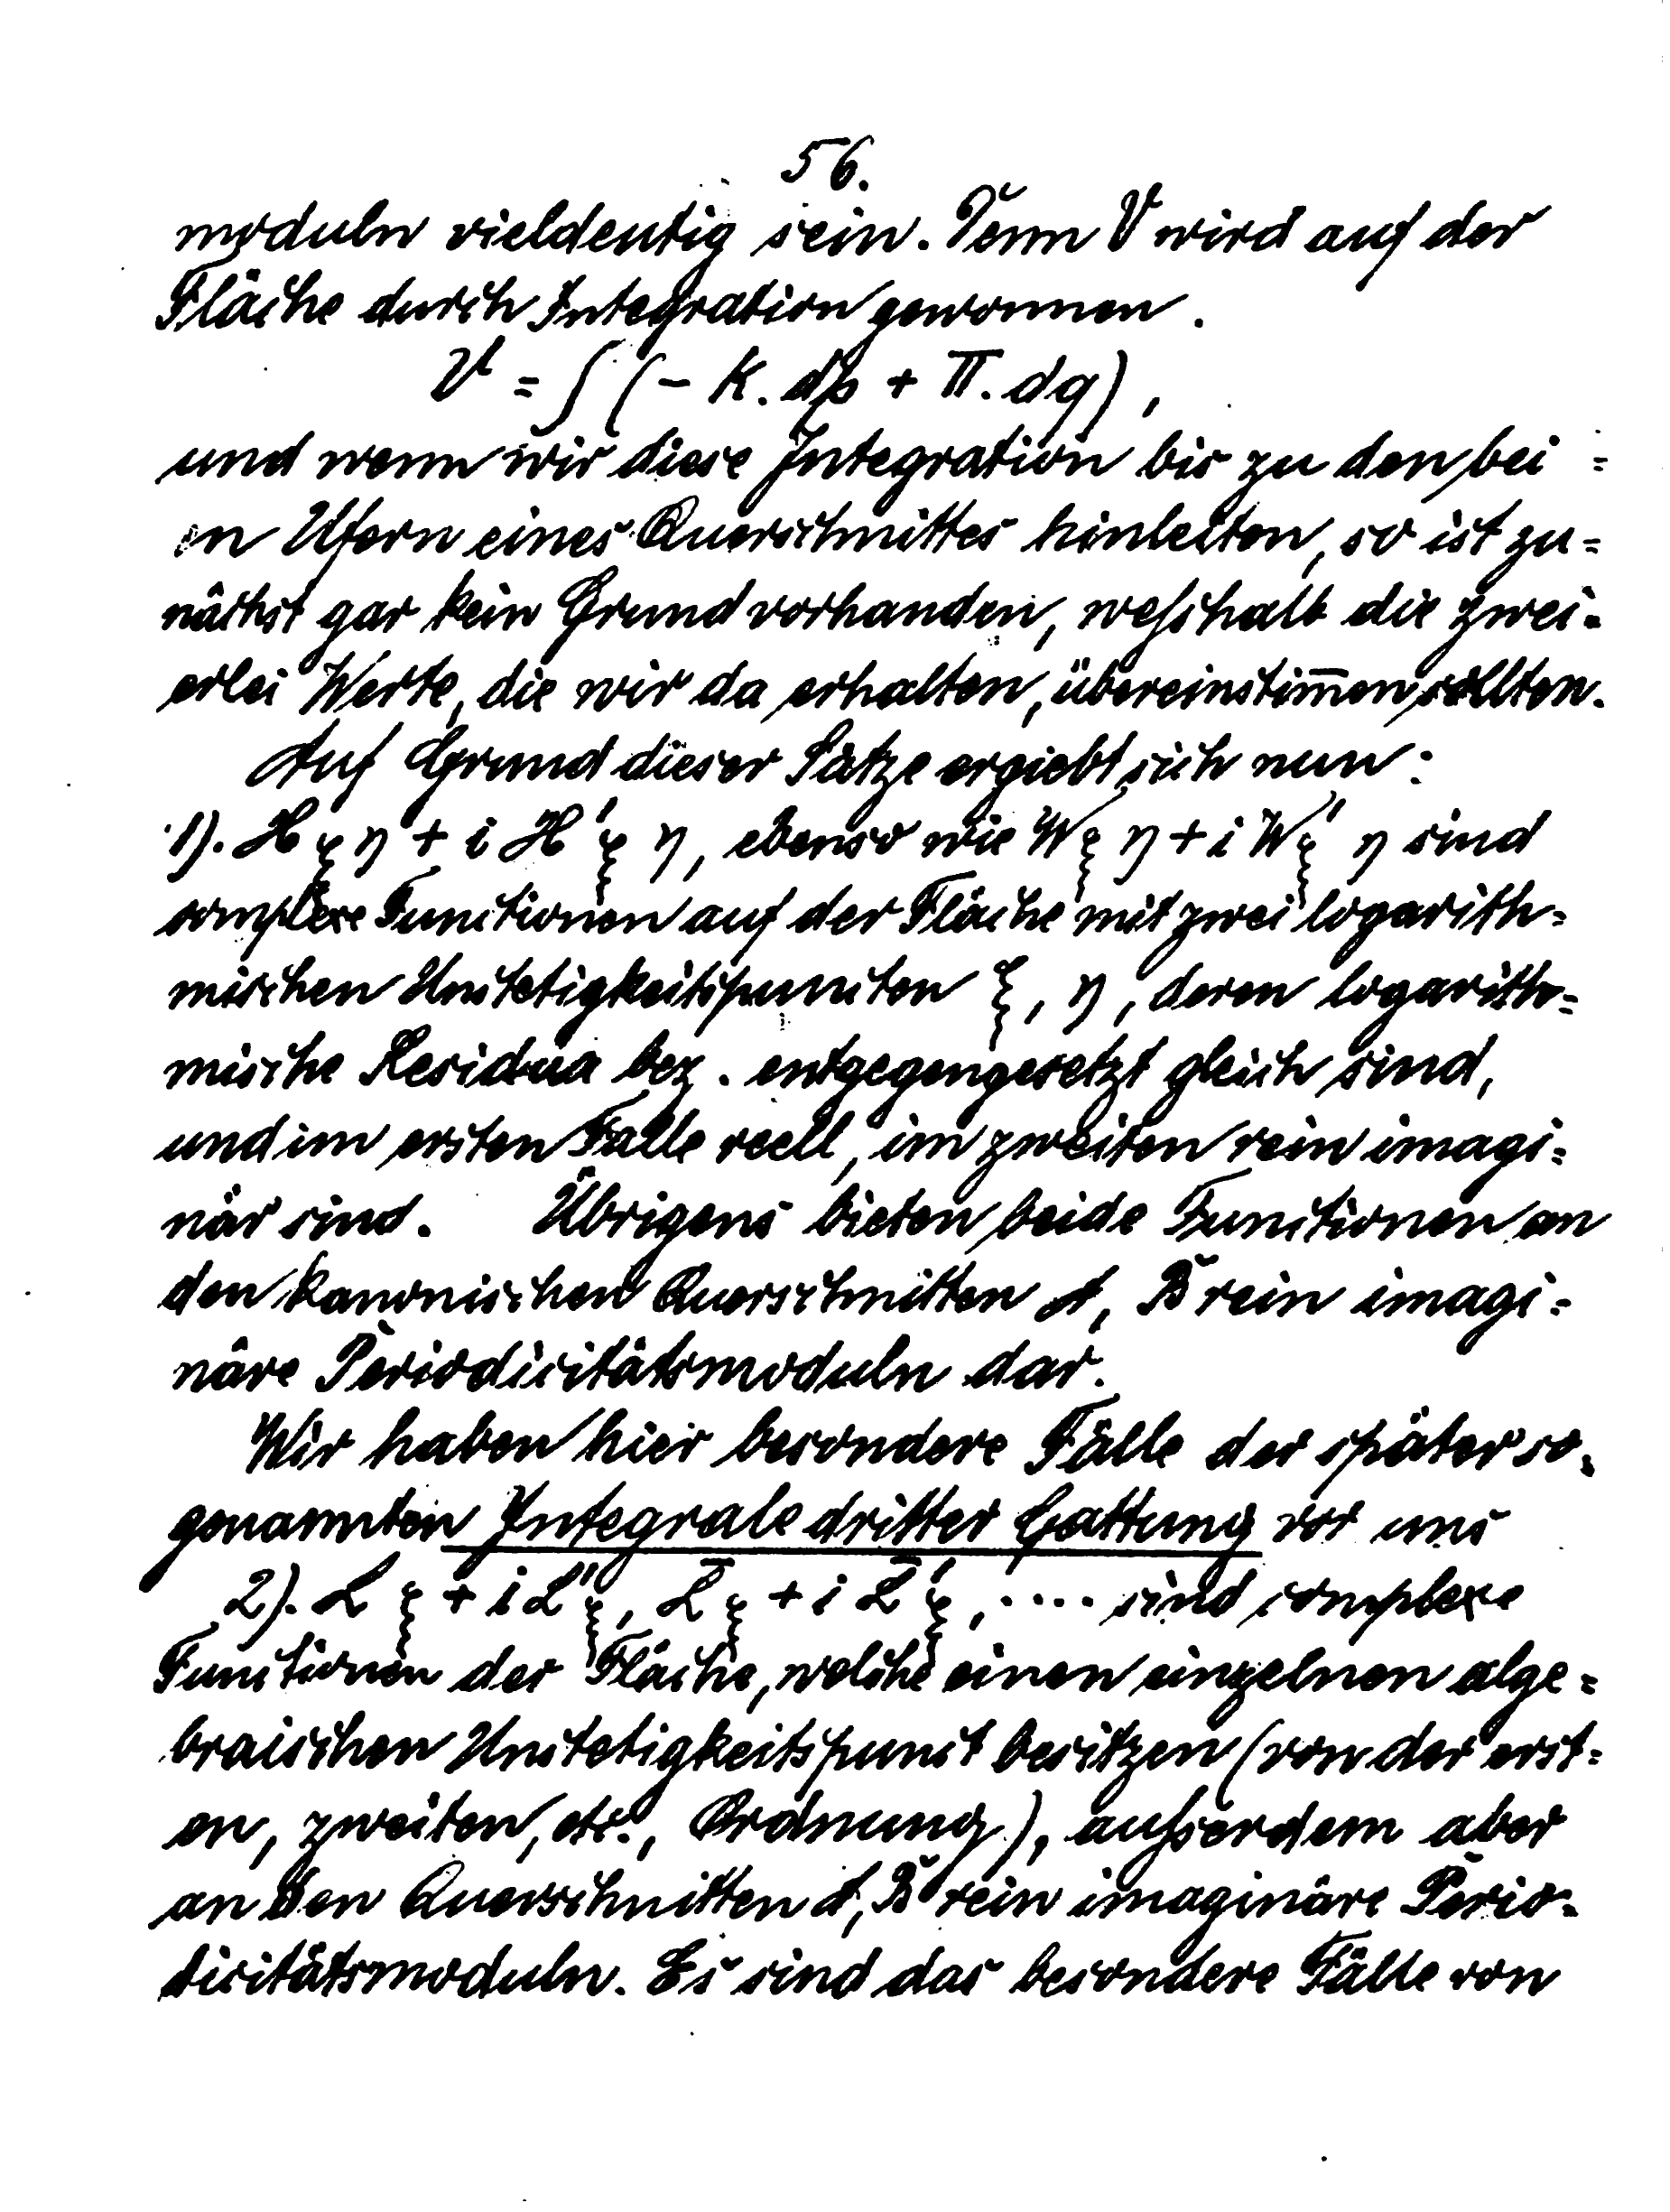 56.
moduln vieldeutig sein. Denn V wird auf der
Fläche durch Integration gewonnen.
V = ∫ (- K. dp + Π. dq),
und wenn wir diese Integration bis zu den bei =
en Ufern eines Querschnittes hinleiten, so ist zu=
nächst gar kein Grund vorhanden, weſshalb die zwei=
erlei Werte, die wir da erhalten, übereinstim̄en sollten.
Auf Grund dieser Sätze ergiebt sich nun:
1). H ξ η + i H' ξ η, ebenso wie W ξ η + i W' ξ η sind
complexe Functionen auf der Fläche mit zwei logarith=
mischen Unstetigkeitspuncten ξ, η, deren logarith=
mische Residua bez. entgegengesetzt gleich sind,
und im ersten Falle reell, im zweiten rein imagi=
när sind. Übrigens bieten beide Functionen an
den kanonischen Querschnitten A, B rein imagi=
näre Periodicitätsmoduln dar.
Wir haben hier besondere Fälle der später so=
genannten Integrale dritter Gattung vor uns
2). L ξ + i L' ξ, L̄ ξ + i L̄' ξ, .... sind complexe
Functionen der Fläche, welche einen einzelnen alge=
braischen Unstetigkeitspunct besitzen (von der erst=
en, zweiten, etc., Ordnung), auſserdem aber
an den Querschnitten A, B rein imaginäre Perio=
dicitätsmoduln. Es sind das besondere Fälle von